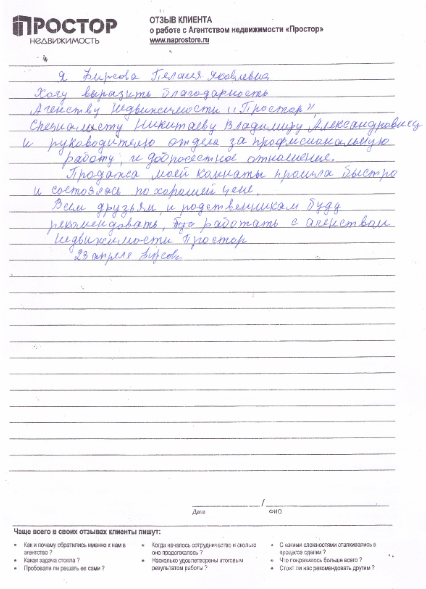 ПРОСТОР
НЕДВИЖИМОСТЬ
ОТЗЫВ КЛИЕНТА
о работе с Агентством недвижимости «Простор»
www.naprostore.ru
Я Бирсова Пелагия Яковлевна
Хочу выразить благодарность
Агенству Недвижимости „Простор",
Специалисту Никитаеву Владимиру Александровичу
и руководителю отдела за профиссиональную
работу, и добросестное отнашение.
Продажа моей комнаты прошла быстро
и состоялась по хорошей цене.
Всем друзьям, и родственникам буду
рекомендовать, работать с агенством
Недвижимости Простор
23 апреля
Дата / ФИО
Чаще всего в своих отзывах клиенты пишут:
• Как и почему обратились именно к нам в агентство ?
• Какая задача стояла ?
• Пробовали ли решать ее сами ?
• Когда началось сотрудничество и сколько оно продолжалось ?
• Насколько удовлетворены итоговым результатом работы ?
• С какими сложностями сталкивались в процессе сделки ?
• Что понравилось больше всего ?
• Стоит ли нас рекомендовать другим ?